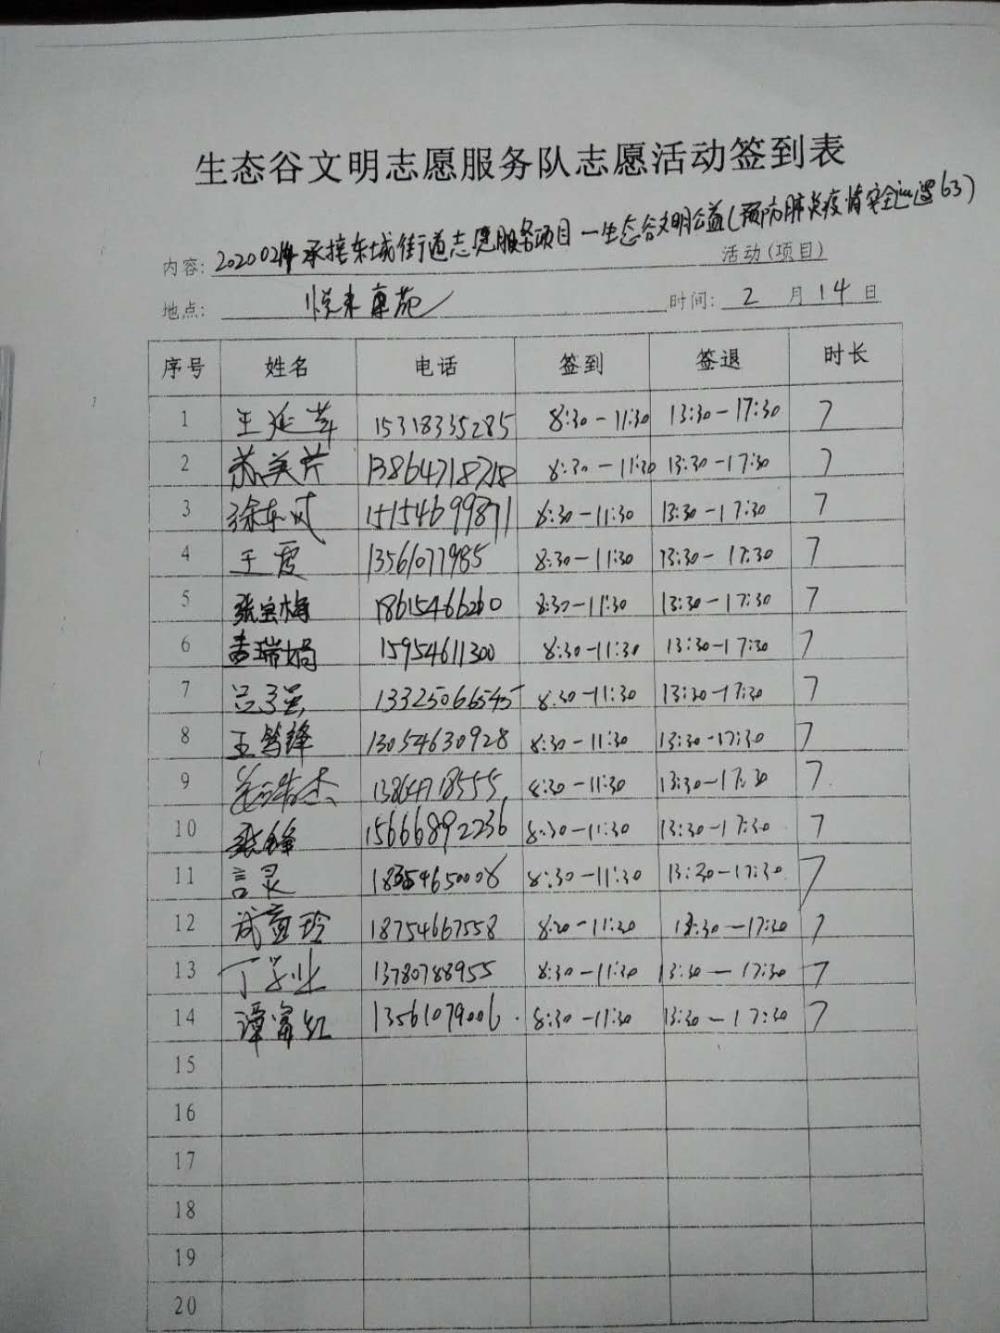 生态谷文明志愿服务队志愿活动签到表
内容: 20200214承接东城街道志愿服务项目一生态谷文明公益(预防肺炎疫情安全巡逻63) 活动(项目)
地点: 悦来康苑 时间: 2 月 14 日
序号 姓名 电话 签到 签退 时长
1 王延 15318335285 8:30-11:30 13:30-17:30 7
2 苏美芹 13864718718 8:30-11:30 13:30-17:30 7
3 徐东 15154699871 8:30-11:30 13:30-17:30 7
4 于霞 13561077985 8:30-11:30 13:30-17:30 7
5 张宝梅 18615466260 8:30-11:30 13:30-17:30 7
6 李瑞娟 15954611300 8:30-11:30 13:30-17:30 7
7 13325066545 8:30-11:30 13:30-17:30 7
8 王笃锋 13054630928 8:30-11:30 13:30-17:30 7
9 杰 13864718555 8:30-11:30 13:30-17:30 7
10 张锋 15666892236 8:30-11:30 13:30-17:30 7
11 8:30-11:30 13:30-17:30 7
12 玲 18754667558 8:30-11:30 13:30-17:30 7
13 丁学业 13780788955 8:30-11:30 13:30-17:30 7
14 谭富红 13561079006 8:30-11:30 13:30-17:30 7
15
16
17
18
19
20